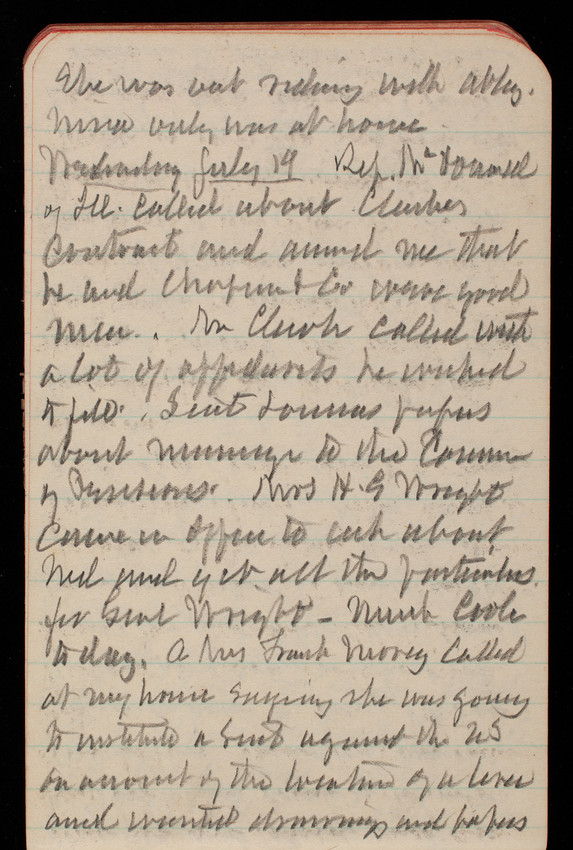 She was out riding with Abby.
Nina only was at home
Wednesday July 19 Rep. McDonnell
of Ill. called about Clarkes
Contract and assured me that
he and Chapin & Co were good
men. Mr Clark called with
a lot of affidavits he wished
to file. Sent papers
about to the Comm
of Pensions. Mrs H G Wright
Came in Office to ask about
Ned and get all the particulars
for Genl Wright - Much Cooler
to day. A Mrs Frank Morey called
at my house saying she was going
to institute a Suit against the US
on account of the location of a levee
and wanted drawings and papers